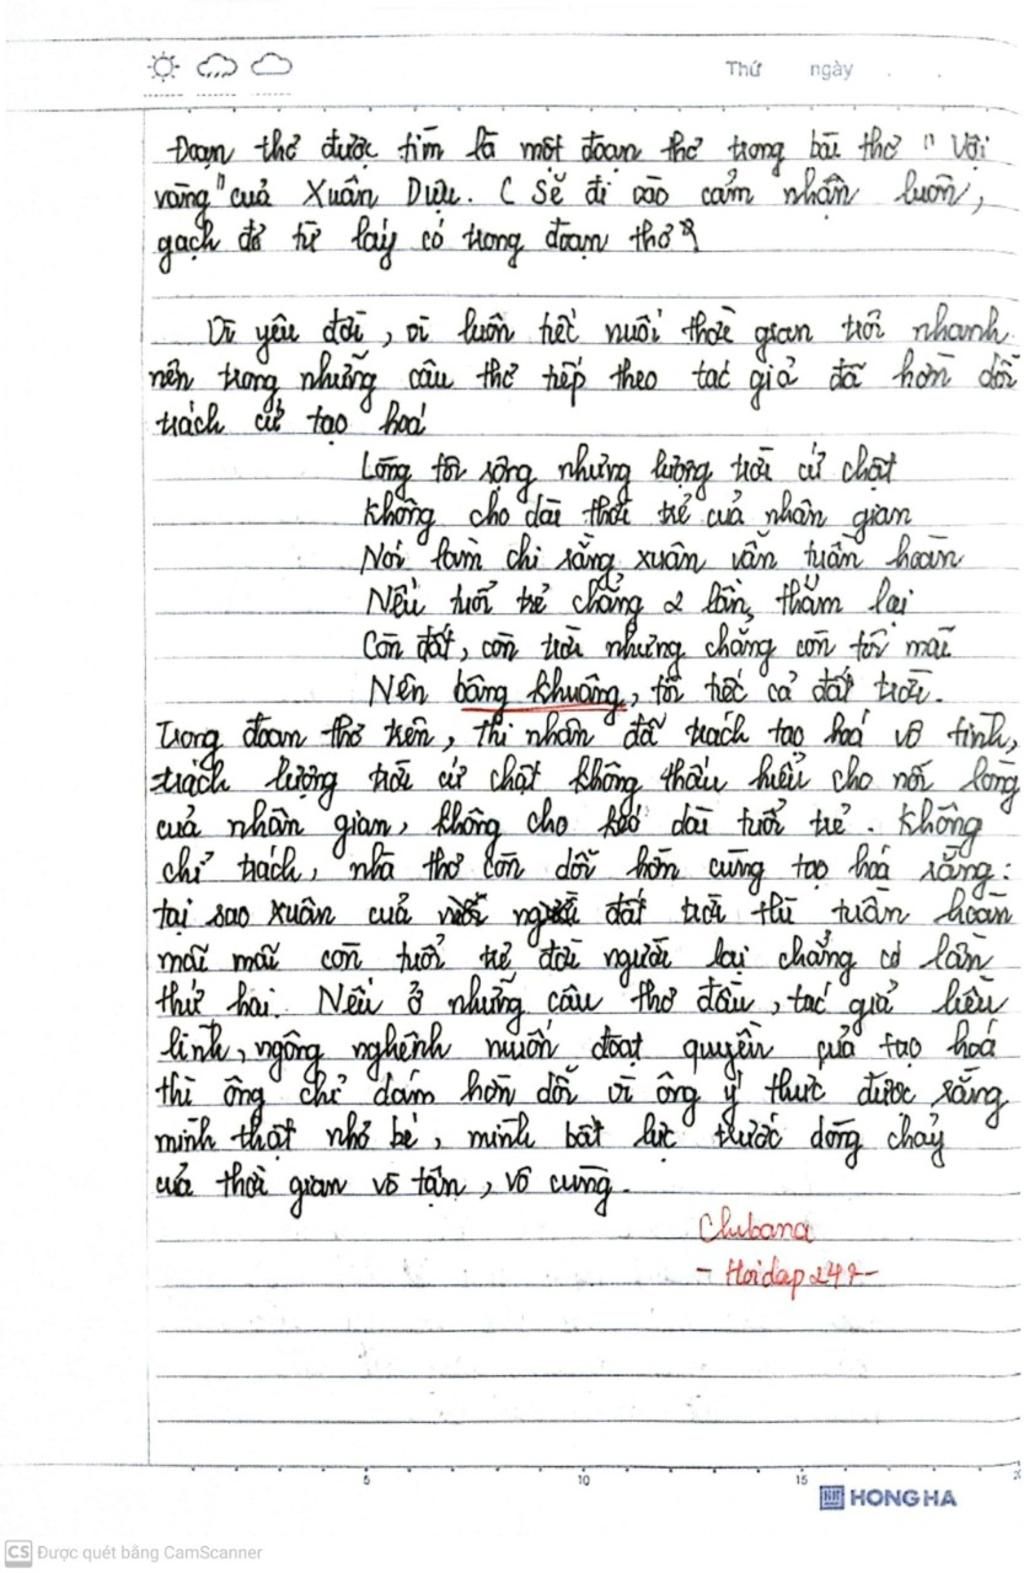 Thứ ngày
Đoạn thơ được tìm là một đoạn thơ trong bài thơ "Vội
vàng" của Xuân Diệu. (Sẽ đi vào cảm nhận luôn,
gạch đỏ từ láy có trong đoạn thơ)
Vì yêu đời, vì luôn tiếc nuôi thời gian trôi nhanh
nên trong những câu thơ tiếp theo tác giả đã hờn dỗi
trách cứ tạo hoá
Lòng tôi rộng nhưng lượng trời cứ chật
Không cho dài thời trẻ của nhân gian
Nói làm chi rằng xuân vẫn tuần hoàn
Nếu tuổi trẻ chẳng 2 lần thắm lại
Còn đất, còn trời nhưng chẳng còn tôi mãi
Nên bâng khuâng, tôi tiếc cả đất trời.
Trong đoạn thơ trên, thi nhân đã trách tạo hoá vô tình,
trách lượng trời cứ chật không thấu hiểu cho nỗi lòng
của nhân gian, không cho kéo dài tuổi trẻ. Không
chỉ trách, nhà thơ còn dỗi hờn cùng tạo hoá rằng:
tại sao xuân của đất trời thì tuần hoàn
mãi mãi còn tuổi trẻ đời người lại chẳng có lần
thứ hai. Nếu ở những câu thơ đầu, tác giả liều
lĩnh, ngông nghênh muốn đoạt quyền của tạo hoá
thì ông chỉ dám hờn dỗi vì ông ý thức được rằng
mình thật nhỏ bé, mình bất lực trước dòng chảy
của thời gian vô tận, vô cùng.
Chubana
- Hoidap247-
5 10 15
HONG HA
CS Được quét bằng CamScanner